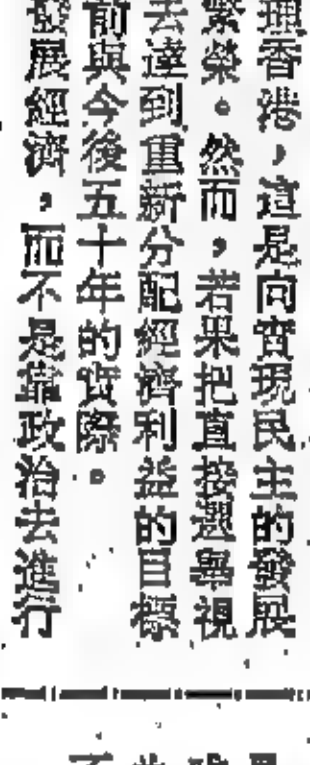 理香港，這是向實現民主的發展
繁榮。然而，若果把直接選舉視
去達到重新分配經濟利益的目標
前與今後五十年的實際。
發展經濟，而不是靠政治去進行